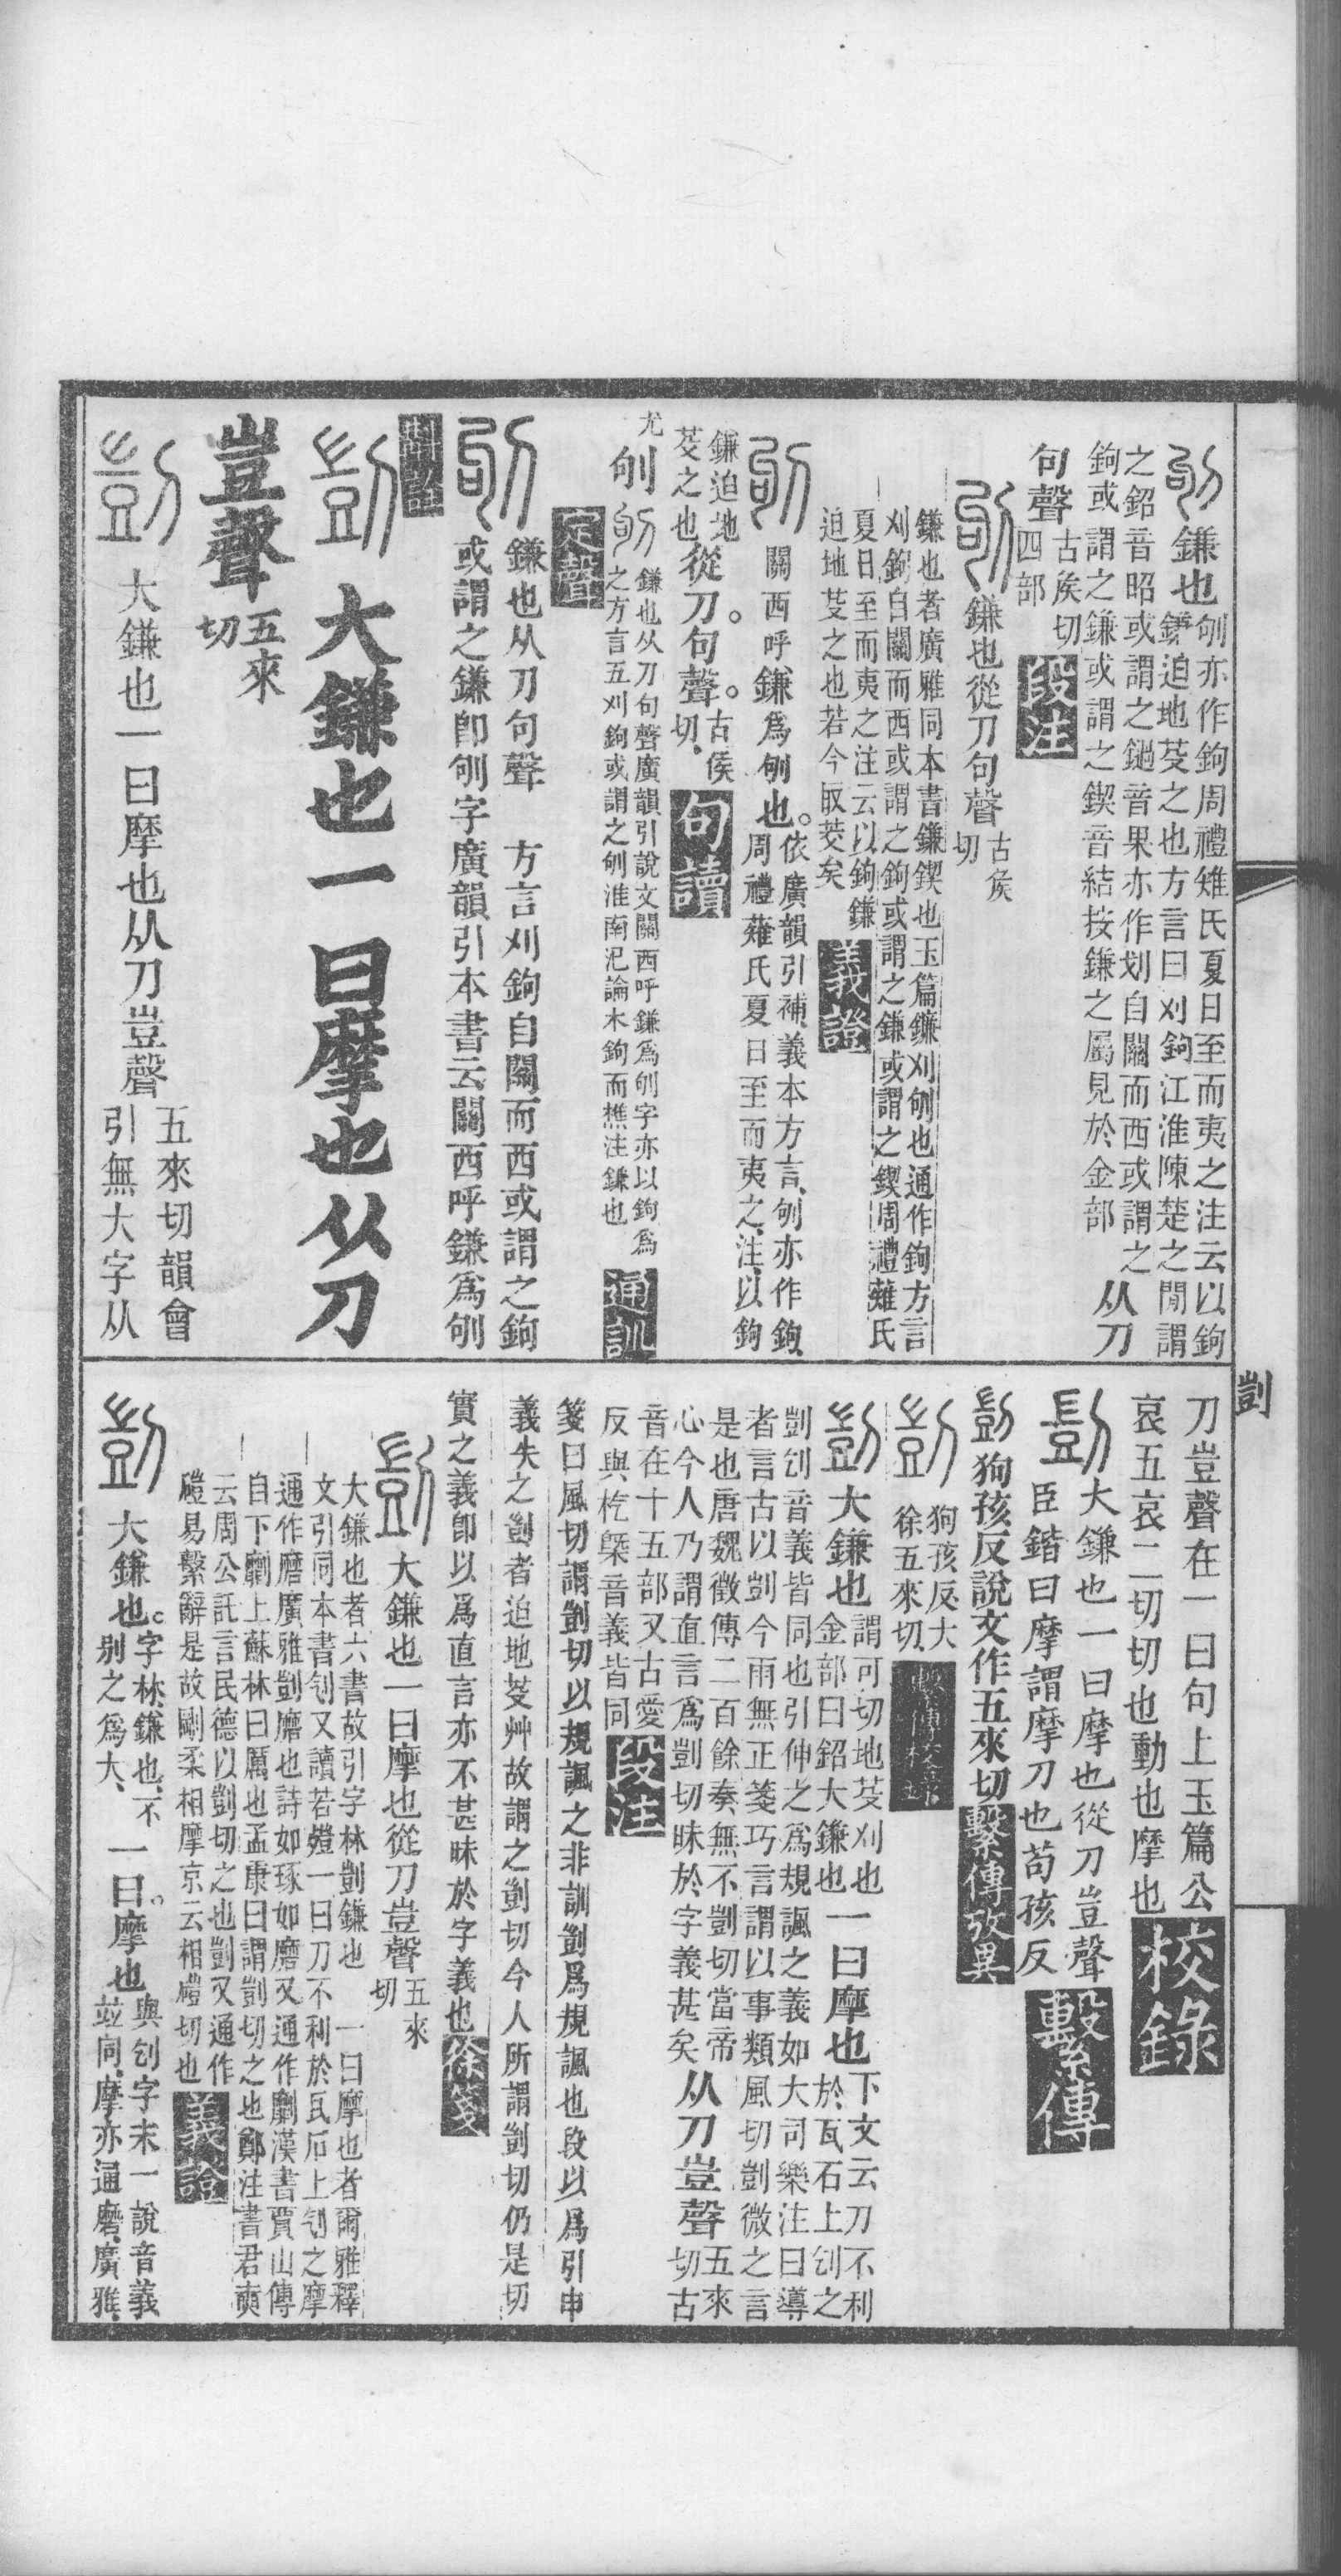 鎌也刏亦作鉤周禮雉氏夏日至而夷之注云以鉤
鎌迫地芟之也方言曰刈鉤江淮陳楚之閒謂
之鉊音昭或謂之鐹音果亦作划自關而西或謂之
鉤或謂之鎌或謂之鍥音結按鎌之屬見於金部从刀
句聲古矦切四部段注
鎌也從刀句聲古矦切
鎌也者廣雅同本書鎌鍥也玉篇鐮刈刏也通作鉤方言
刈鉤自關而西或謂之鉤或謂之鎌或謂之鍥周禮薙氏
夏日至而夷之注云以鉤鎌
迫地芟之也若今取茭矣義證
關西呼鎌爲刏也。依廣韻引補、義本方言、刏亦作鉤、
周禮薙氏夏日至而夷之、注、以鉤
鎌迫地芟之也從刀。句聲。古矦切、句讀
鎌也从刀句聲廣韻引說文關西呼鎌爲刏字亦以鉤爲
之方言五刈鉤或謂之刏淮南氾論木鉤而樵注鎌也通訓
定聲
鎌也从刀句聲 方言刈鉤自關而西或謂之鉤
或謂之鎌卽刏字廣韻引本書云關西呼鎌爲刏
斠詮
大鎌也一曰摩也从刀
豈聲五來切
大鎌也一曰摩也从刀豈聲五來切韻會
引無大字从
剴
刀豈聲在一曰句上玉篇公
哀五哀二切切也動也摩也校錄
大鎌也一曰摩也從刀豈聲
臣鍇曰摩謂摩刀也苟孩反繫傳
狗孩反說文作五來切繫傳攷異
狗孩反大
徐五來切
大鎌也謂可切地芟刈也
金部曰鉊大鎌也一曰摩也下文云刀不利
於瓦石上刉之
剴刉音義皆同也引伸之爲規諷之義如大司樂注曰導
者言古以剴今雨無正箋巧言謂以事類風切剴微之言
是也唐魏徵傳二百餘奏無不剴切當帝
心今人乃謂直言爲剴切昧於字義甚矣从刀豈聲五來切古
音在十五部又古愛
反與杚槩音義皆同段注
箋曰風切謂剴切以規諷之非訓剴爲規諷也段以爲引申
義失之剴者迫地芟艸故謂之剴切今人所謂剴切仍是切
實之義卽以爲直言亦不甚昧於字義也徐箋
大鎌也一曰摩也從刀豈聲五來切
大鎌也者六書故引字林剴鎌也 一曰摩也者爾雅釋
文引同本書刉又讀若殪一曰刀不利於瓦石上刉之摩
通作磨廣雅剴磨也詩如琢如磨又通作劘漢書賈山傳
自下劘上蘇林曰厲也孟康曰謂剴切之也鄭注書君奭
云周公託言民德以剴切之也剴又通作
磑易繫辭是故剛柔相摩京云相磑切也義證
大鎌也。字林、鎌也、不
别之爲大、一曰。摩也與刉字末一說音義
竝同、摩亦通磨、廣雅、